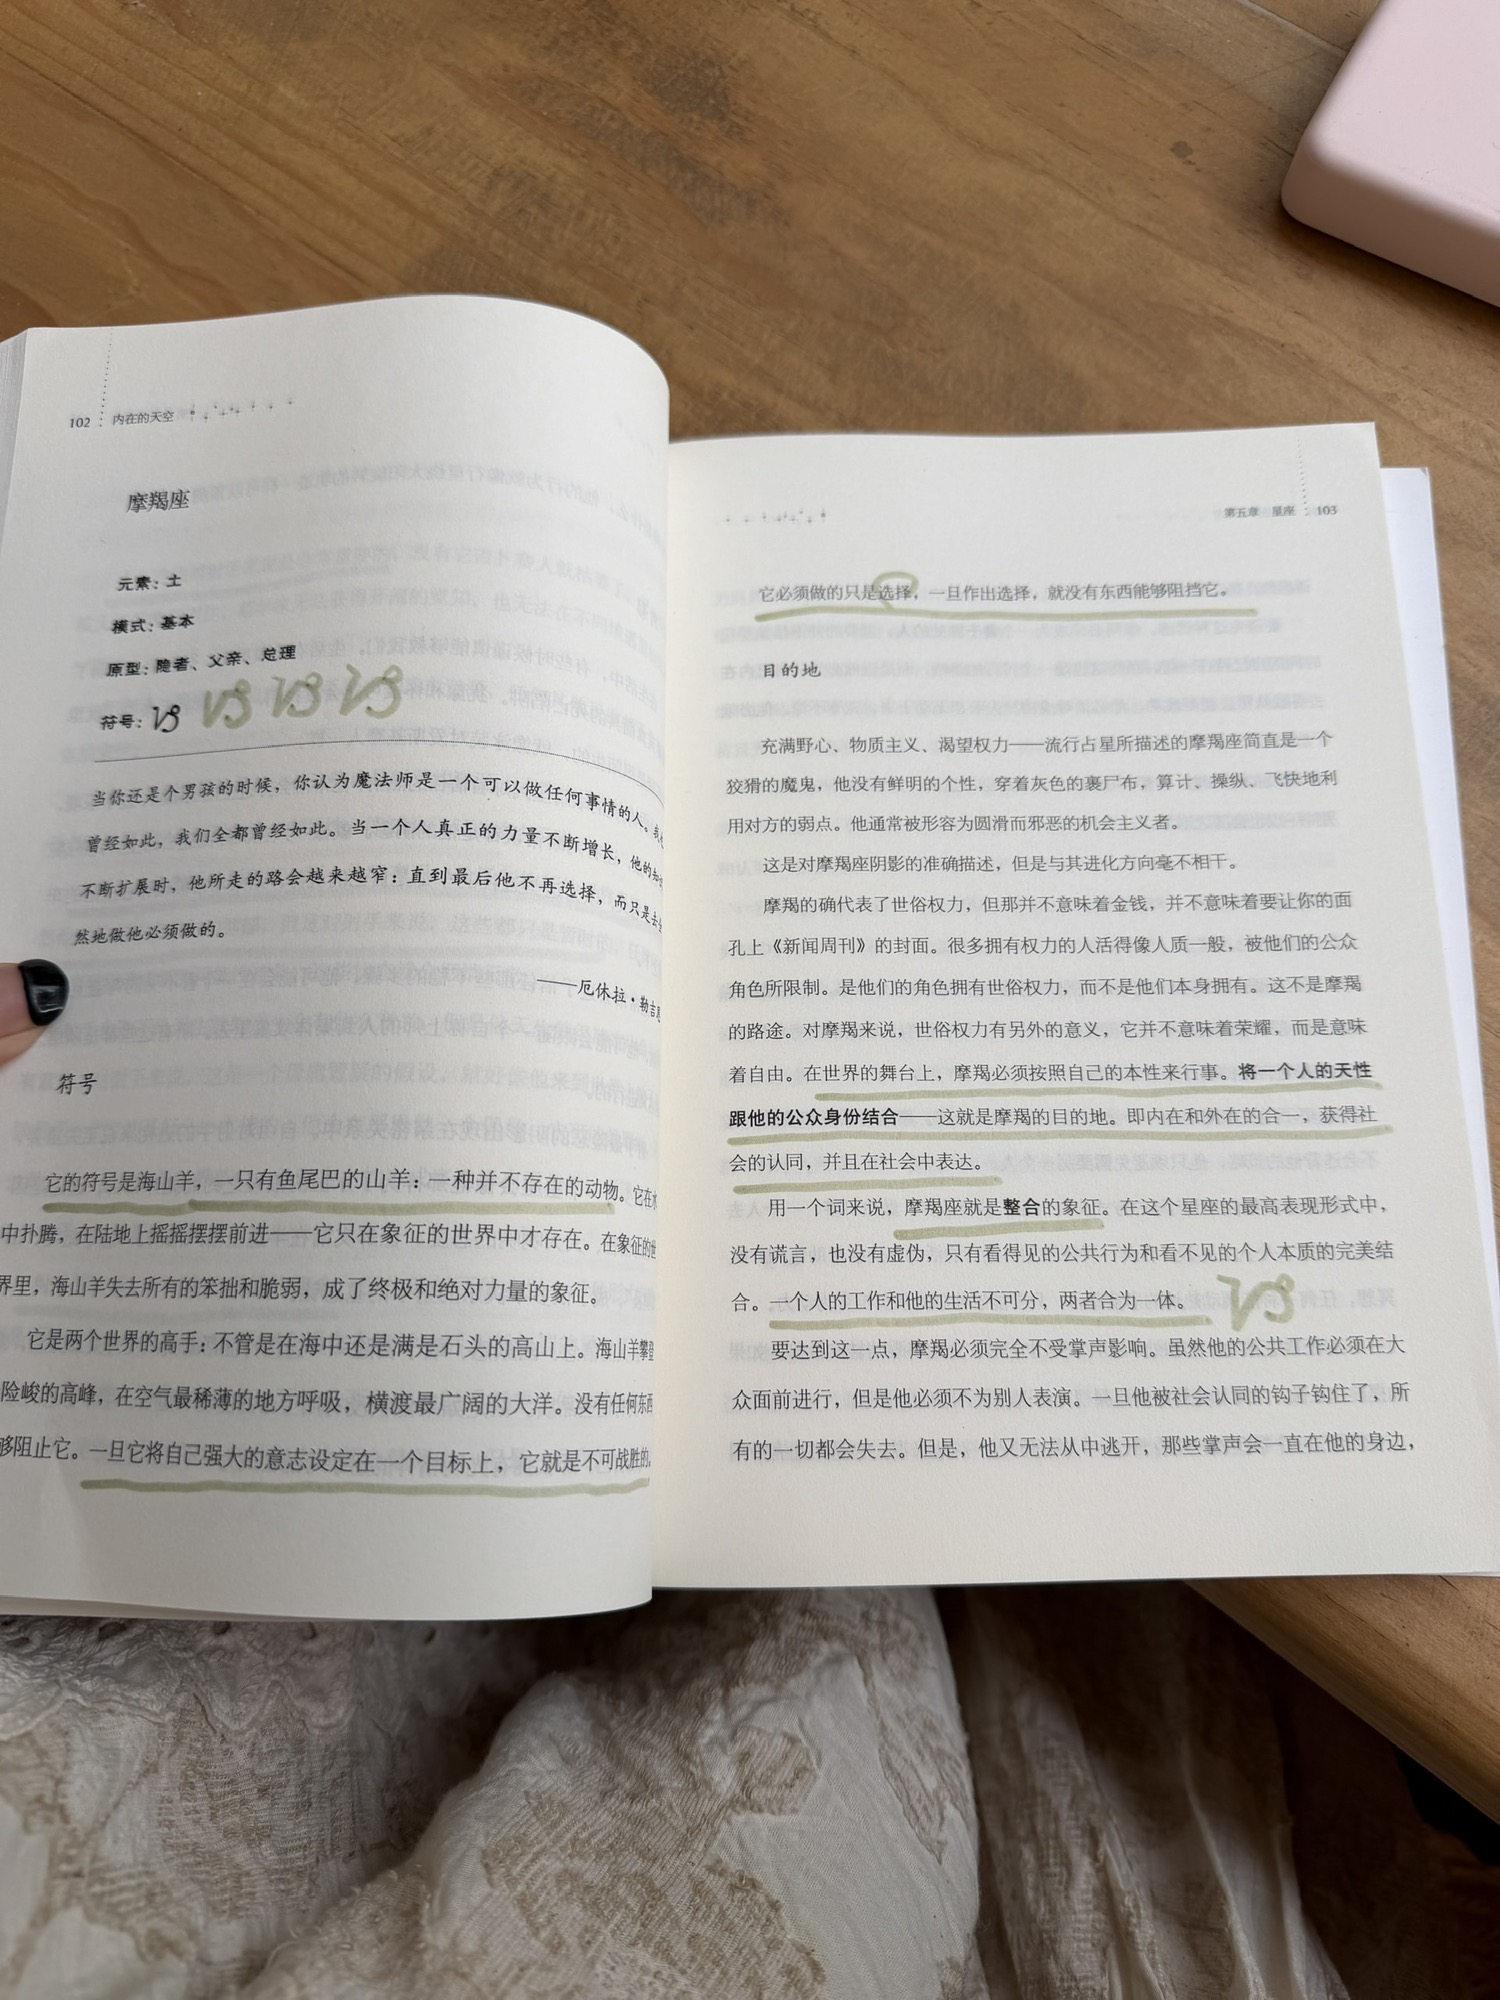 102 内在的天空
摩羯座
元素：土
模式：基本
原型：隐者、父亲、总理
符号：♑ ♑ ♑ ♑
当你还是个男孩的时候，你认为魔法师是一个可以做任何事情的人。我
曾经如此，我们全都曾经如此。当一个人真正的力量不断增长，他的知
不断扩展时，他所走的路会越来越窄：直到最后他不再选择，而只是去
然地做他必须做的。
——厄休拉·勒吉
符号
它的符号是海山羊，一只有鱼尾巴的山羊：一种并不存在的动物。它在
中扑腾，在陆地上摇摇摆摆前进——它只在象征的世界中才存在。在象征的世
界里，海山羊失去所有的笨拙和脆弱，成了终极和绝对力量的象征。
它是两个世界的高手：不管是在海中还是满是石头的高山上。海山羊攀登
险峻的高峰，在空气最稀薄的地方呼吸，横渡最广阔的大洋。没有任何东西
够阻止它。一旦它将自己强大的意志设定在一个目标上，它就是不可战胜的。
第五章 星座 103
它必须做的只是选择，一旦作出选择，就没有东西能够阻挡它。
目的地
充满野心、物质主义、渴望权力——流行占星所描述的摩羯座简直是一个
狡猾的魔鬼，他没有鲜明的个性，穿着灰色的裹尸布，算计、操纵、飞快地利
用对方的弱点。他通常被形容为圆滑而邪恶的机会主义者。
这是对摩羯座阴影的准确描述，但是与其进化方向毫不相干。
摩羯的确代表了世俗权力，但那并不意味着金钱，并不意味着要让你的面
孔上《新闻周刊》的封面。很多拥有权力的人活得像人质一般，被他们的公众
角色所限制。是他们的角色拥有世俗权力，而不是他们本身拥有。这不是摩羯
的路途。对摩羯来说，世俗权力有另外的意义，它并不意味着荣耀，而是意味
着自由。在世界的舞台上，摩羯必须按照自己的本性来行事。将一个人的天性
跟他的公众身份结合——这就是摩羯的目的地。即内在和外在的合一，获得社
会的认同，并且在社会中表达。
用一个词来说，摩羯座就是整合的象征。在这个星座的最高表现形式中，
没有谎言，也没有虚伪，只有看得见的公共行为和看不见的个人本质的完美结
合。一个人的工作和他的生活不可分，两者合为一体。 ♑
要达到这一点，摩羯必须完全不受掌声影响。虽然他的公共工作必须在大
众面前进行，但是他必须不为别人表演。一旦他被社会认同的钩子钩住了，所
有的一切都会失去。但是，他又无法从中逃开，那些掌声会一直在他的身边，